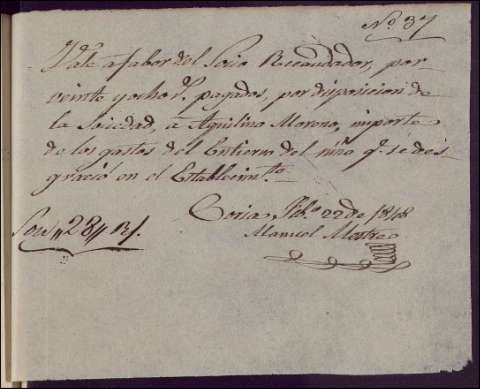 Nº 37
Vale a fabor del Socio Recaudador, por
veinte y ocho rˢ. pagados, por disposicion de
la Soiedad, a Aquilino Moreno, importe
de los gastos del Entierro del niño q. se des
gració en el Establecimᵗᵒ.
Coria Febº 22 de 1848
Son,, 28,, Rˢ.
Manuel Mestre